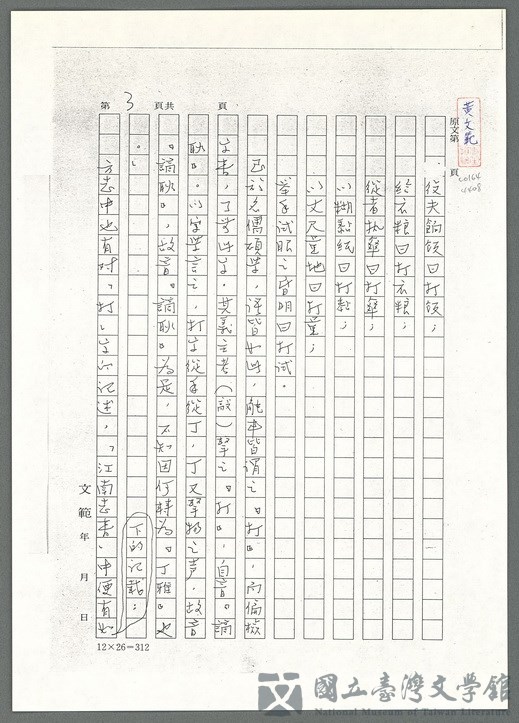 黃文範
原文第 頁
第 3 頁共 頁
役夫餉飯曰打飯；
給衣糧曰打衣糧；
從者執傘曰打傘；
以糊黏紙曰打黏；
以丈尺量地曰打量；
舉手試眼之昏明曰打試。
至於名儒碩學，語皆如此，觸事皆謂之『打』，而偏檢
字書，了無此字。其義主考（設）擊之『打』，自音『謫
耿』。以字學言之，打字從手從丁，丁又擊物之声，故音
『謫耿』，故音『謫耿』為是，不知因何轉為『丁雅』也
。」
方志中也有对「打」字的記述，「江南志書」中便有如
下的記載：
文範 年 月 日
12×26=312
國立臺灣文學館
National Museum of Taiwan Literature